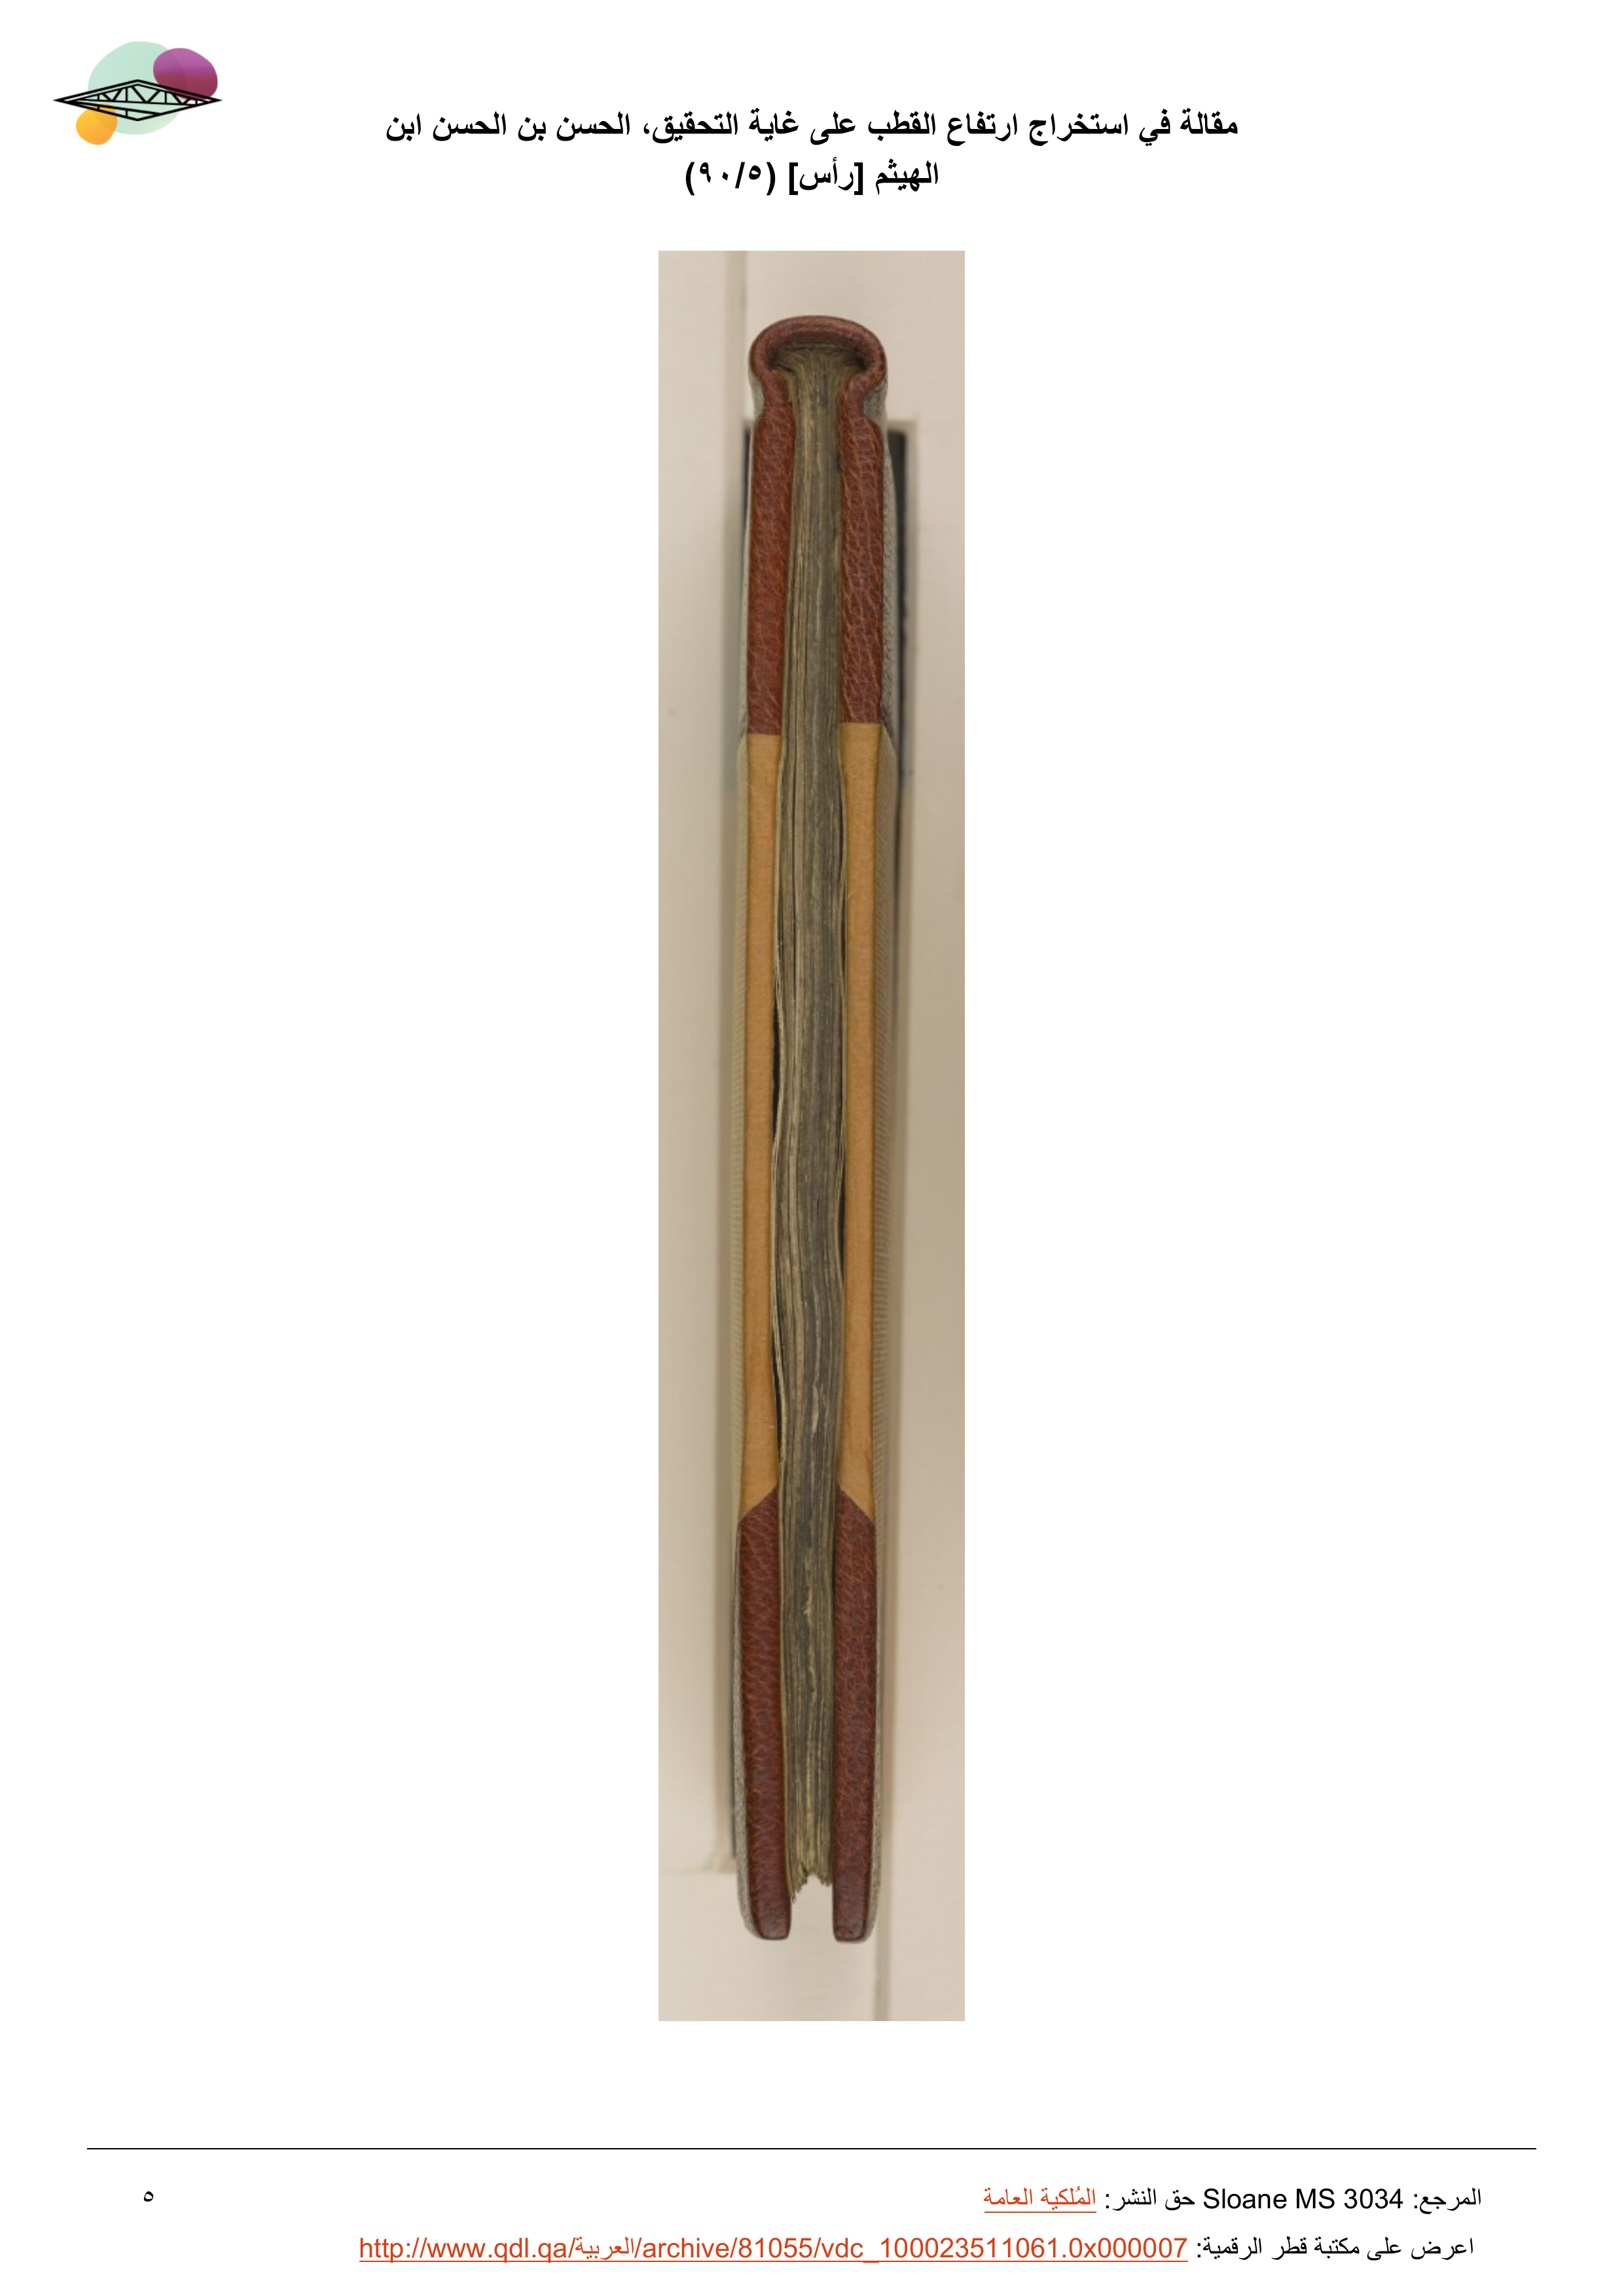 مقالة في استخراج ارتفاع القطب على غاية التحقيق، الحسن بن الحسن ابن
الهيثم [رأس] (٩٠/٥)
المرجع: Sloane MS 3034 حق النشر: المُلكية العامة
٥
اعرض على مكتبة قطر الرقمية: http://www.qdl.qa/العربية/archive/81055/vdc_100023511061.0x000007